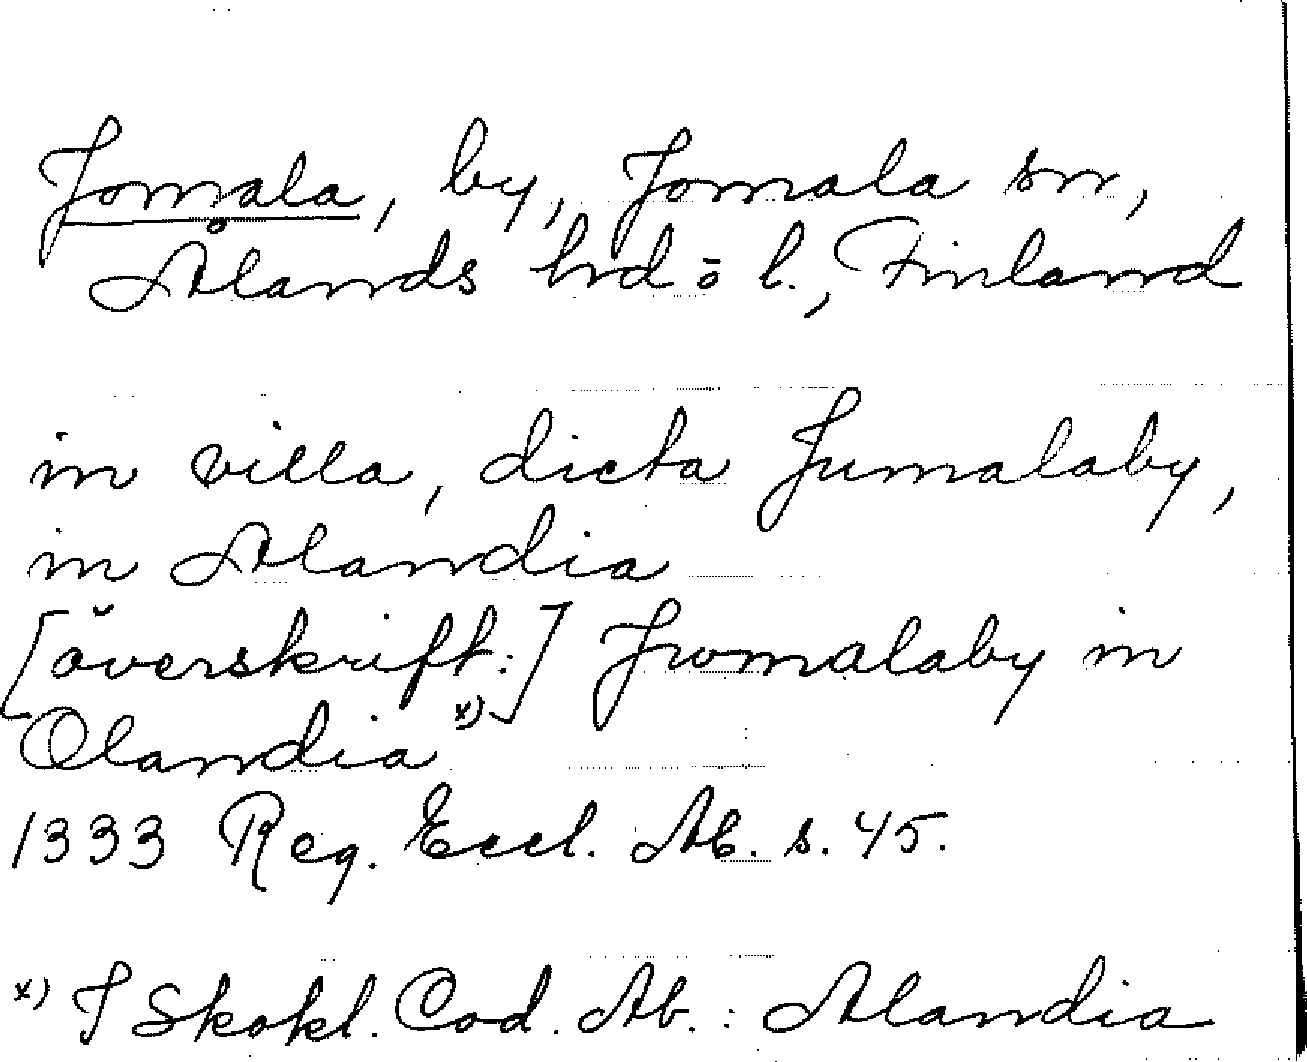 Jomala, by, Jomala sn,
Ålands hrd o l., Finland
in villa, dicta Jumalaby,
in Alandia
[överskrift:] Jwmalaby in
Olandia x)
1333 Reg. Eccl. Ab. s. 45.
x) I Skokl. Cod. Ab.: Alandia